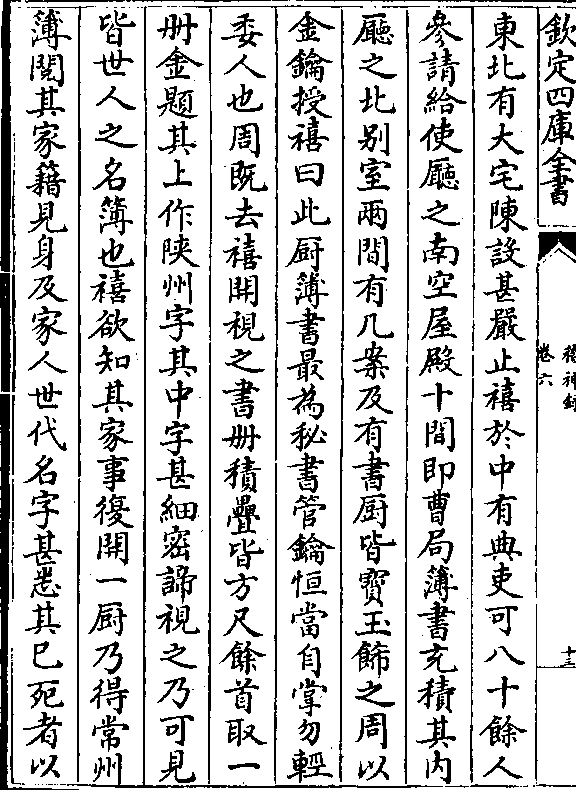 欽定四庫全書
稽神錄
卷六
十三
東北有大宅陳設甚嚴止禧於中有典吏可八十餘人
參請給使廳之南空屋殿十間即曹局簿書充積其内
廳之北别室兩間有几案及有書厨皆寳玉飾之周以
金鑰授禧曰此厨簿書最為秘書管鑰恒當自掌勿輕
委人也周既去禧開視之書冊積疊皆方尺餘首取一
冊金題其上作陜州字其中字甚細密諦視之乃可見
皆世人之名簿也禧欲知其家事復開一厨乃得常州
簿閲其家籍見身及家人世代名字甚悉其已死者以